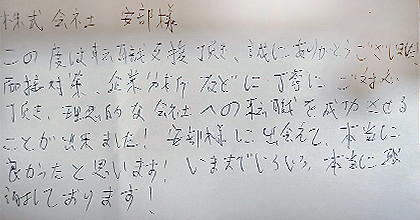 株式会社 安部様
この度は転職支援頂き、誠にありがとうございました
面接対策、企業分析などに丁寧にご対応
頂き、理想的な会社への転職を成功させる
ことが出来ました！安部様に出会えて、本当に
良かったと思います！いままでいろいろ、本当に感
謝しております！